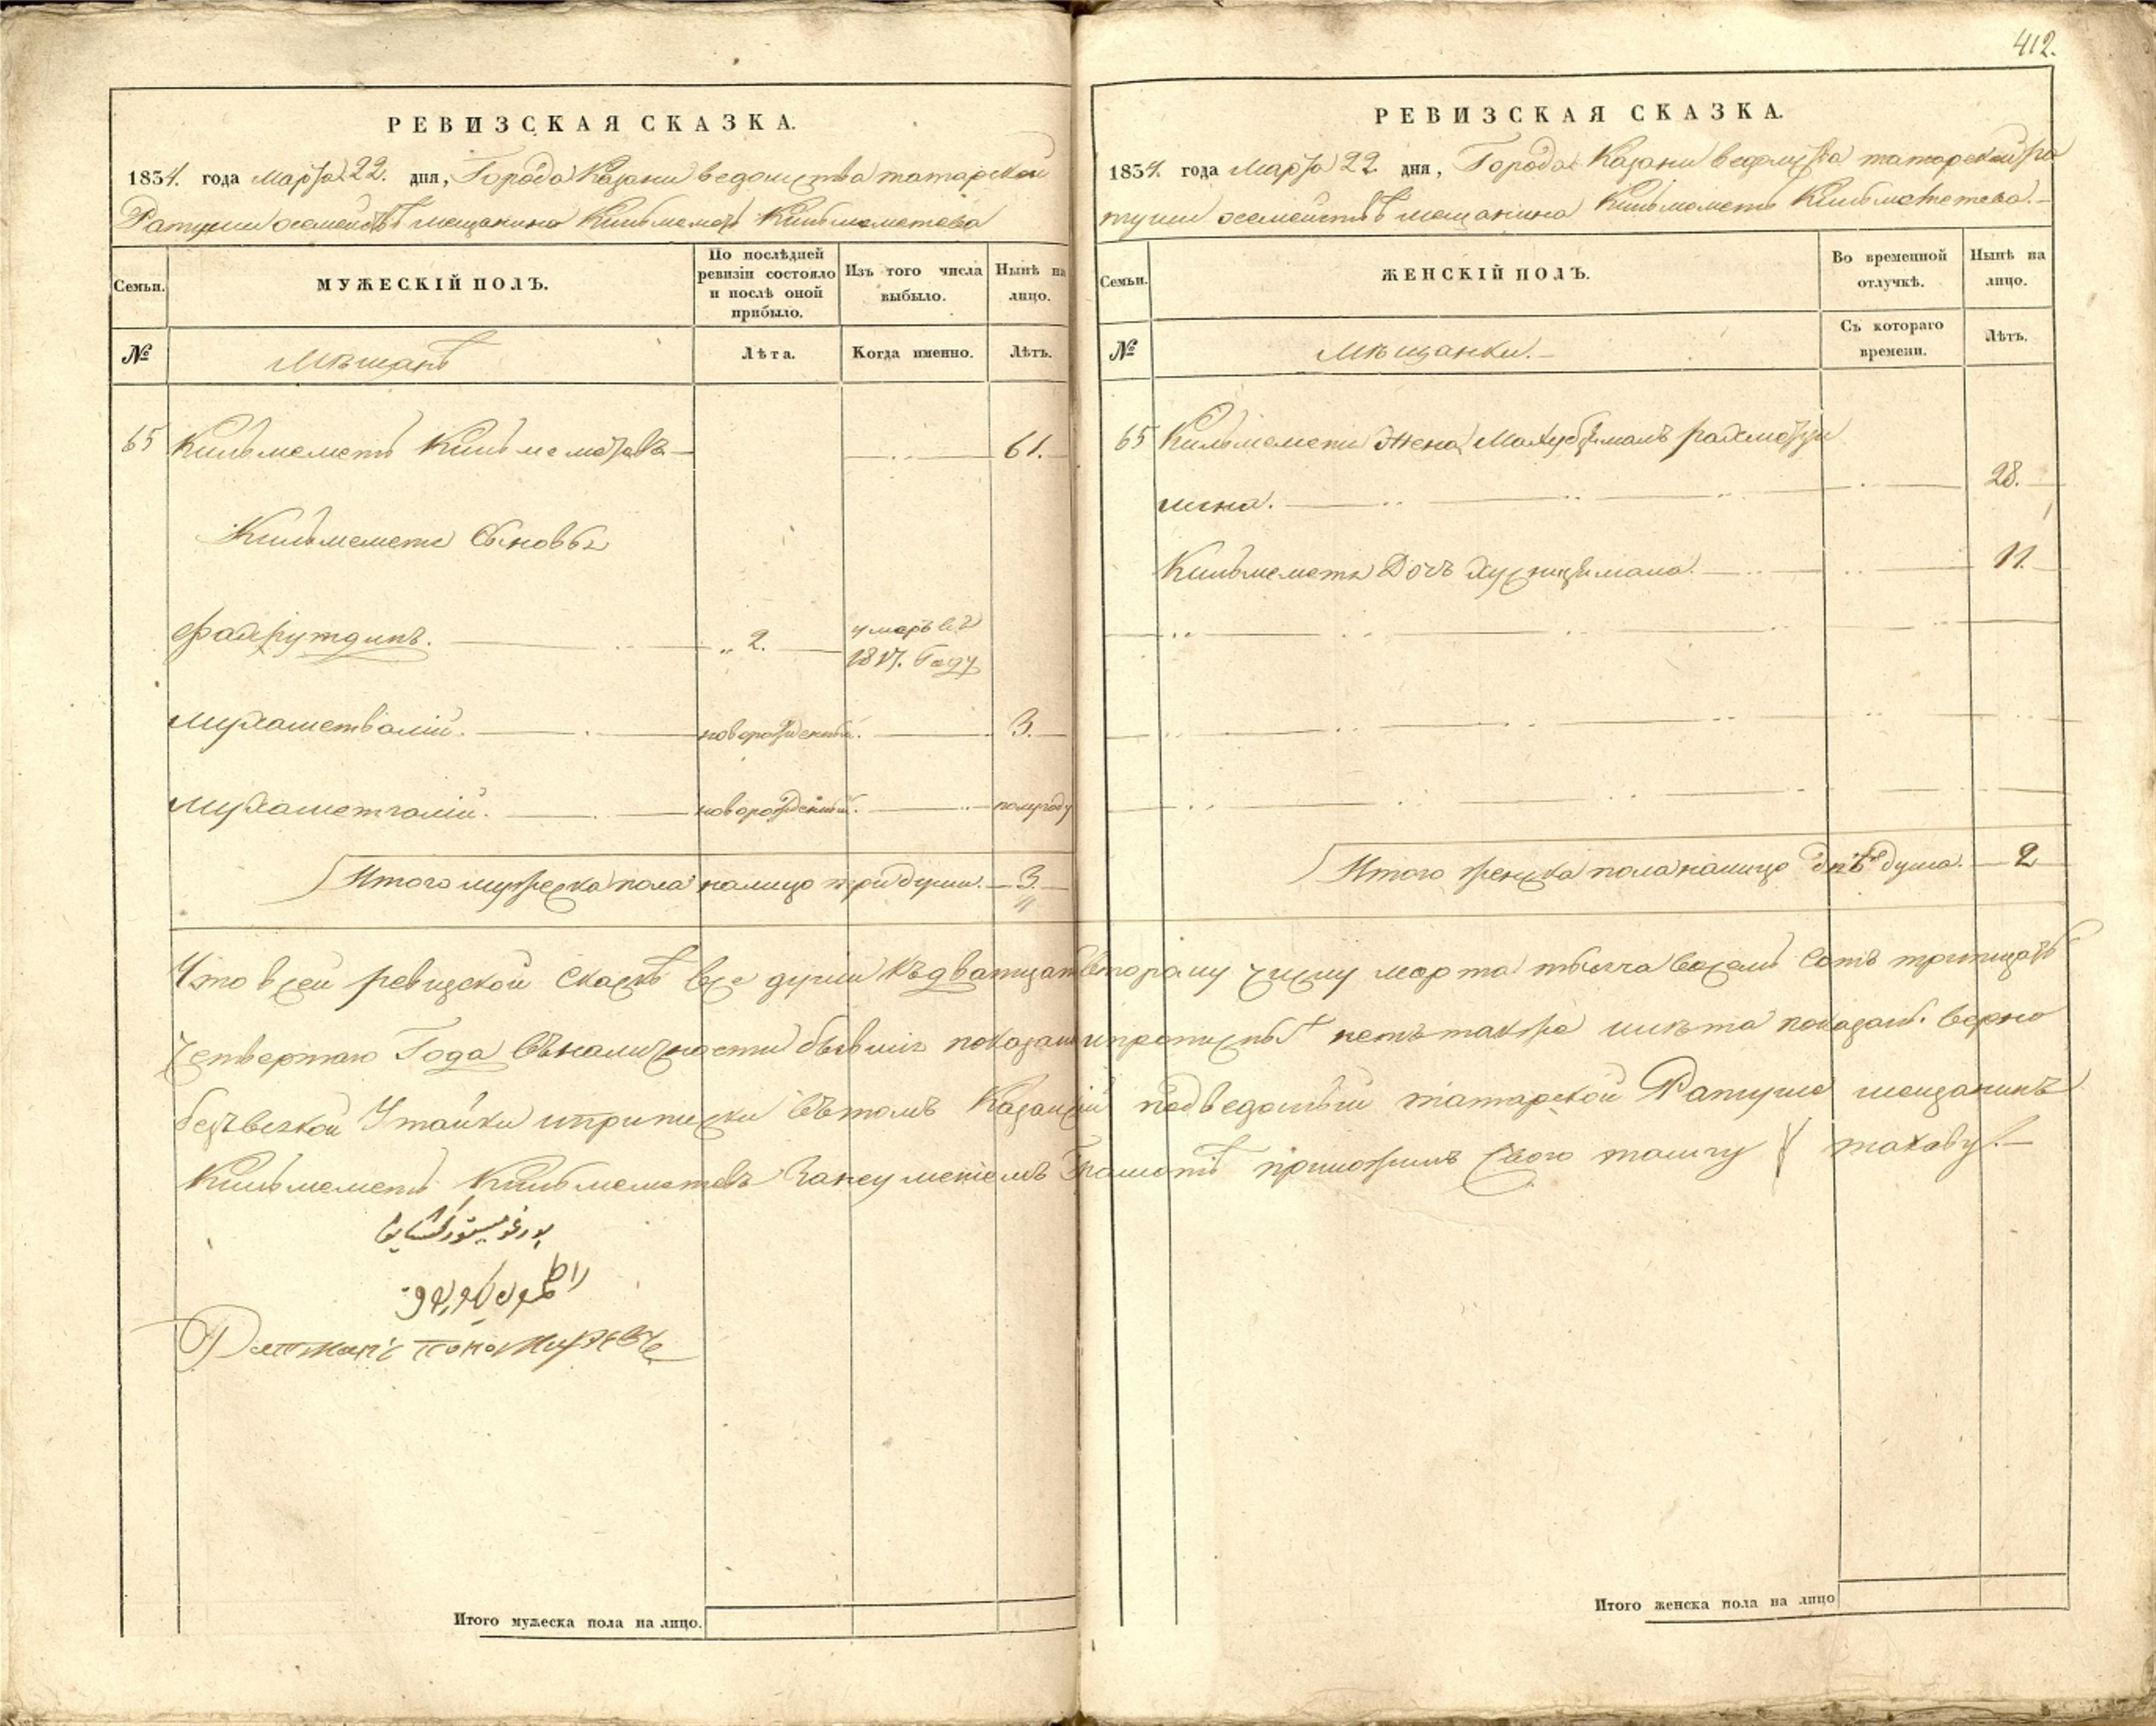 412.
РЕВИЗСКАЯ СКАЗКА.
1834. года Марта 22. дня, Города Казани ведомства татарской
Ратуши осемействѣ мещанина Кильмеметь Кильмеметева
Семьи.
МУЖЕСКІЙ ПОЛЪ.
По послѣдней ревизіи состояло и послѣ оной прибыло.
Изъ того числа выбыло.
Нынѣ на лицо.
№
Мѣщанѣ
Лѣта.
Когда именно.
Лѣтъ.
65 Кильмеметь Кильмеметевъ 61.
Кильмеметя Сыновья
Фахрутдинъ. 2. умеръ въ
1817. Году
Мухаметвалій. новорожденный. 3.
Мухаметгалій. новорожденный. полугоду
Итого мужеска пола налицо три души. 3.
РЕВИЗСКАЯ СКАЗКА.
1834. года Марта 22 дня, Города Казани ведомства татарской ра
туши осемействѣ мещанина Кильмеметь Кильмеметева.
Семьи.
ЖЕНСКІЙ ПОЛЪ.
Во временной отлучкѣ.
Нынѣ на лицо.
№
Мѣщанки.
Съ котораго времени.
Лѣтъ.
65 Кильмеметя Жена
28.
Кильмеметя Дочь 11.
Итого женска пола налицо двѣ душа. 2
Что в сей ревизской сказкѣ все души къ дватцать второму числу марта тысяча восемь сотъ тритцать
четвертаго Года въ наличности бывшіе показаны и прописныхъ нетъ также и лѣта показаны верно
безъ всякой Утайки и приписки въ томъ Казанскій подведомый татарской Ратуше мещанинъ
Кильмеметь Кильмеметевъ Занеуменіемъ Грамотѣ приложилъ свою тамгу такову.
Ратманъ Пономаревъ
Итого мужеска пола на лицо.
Итого женска пола на лицо